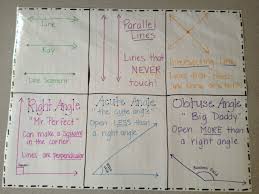 Line
Ray
Line Segment
Parallel
Lines
Lines that
NEVER
touch!
Intersecting Lines
Right Angle
"Mr Perfect"
Can make a square
in the corner.
Lines are perpendicular
Acute Angle
"the cute angle"
Open LESS than
a right angle
Obtuse Angle
"Big Daddy"
Open MORE than
a right angle